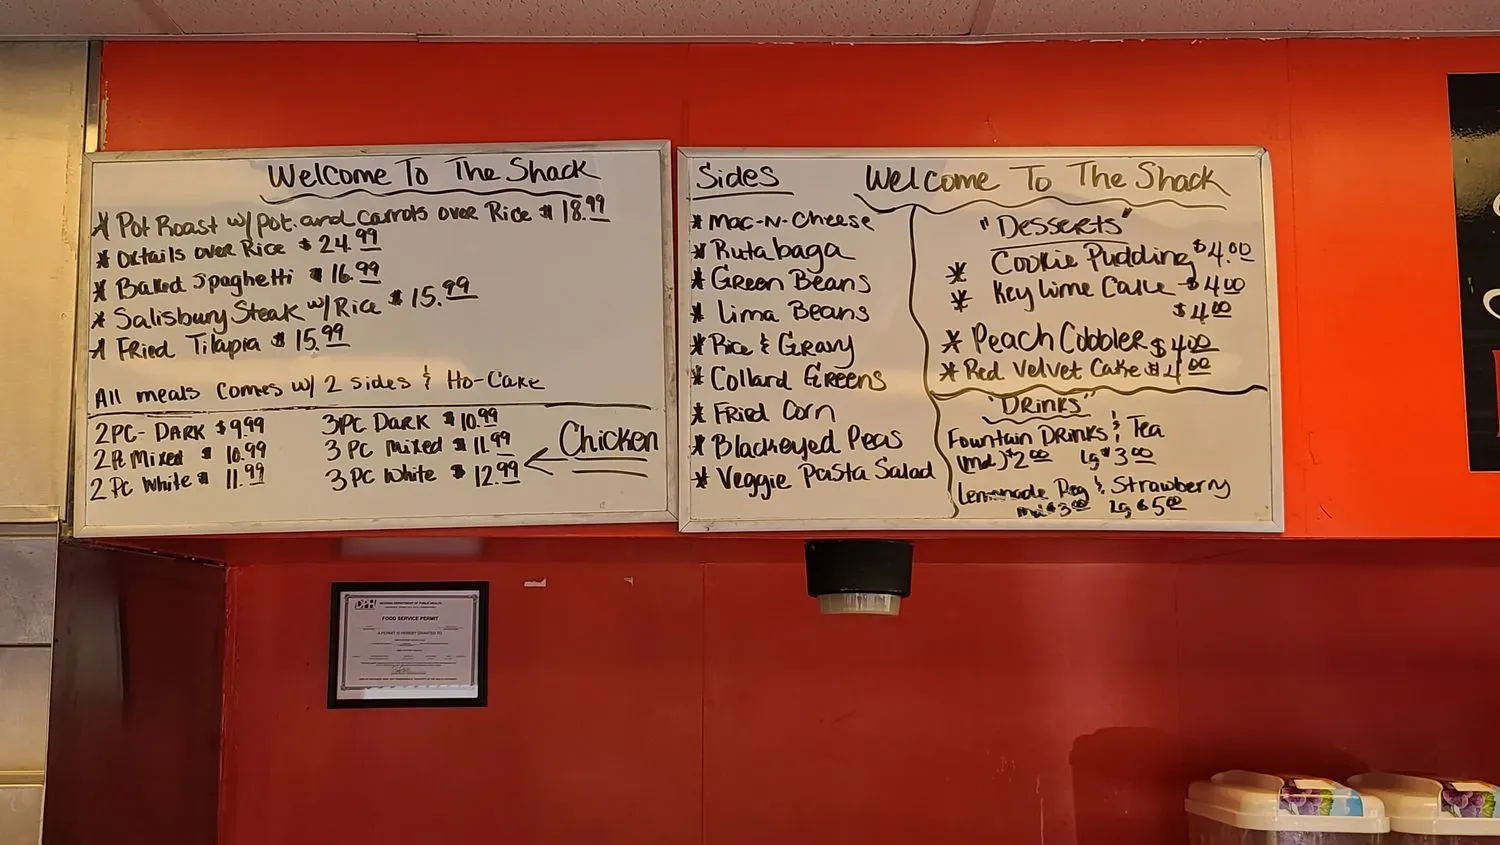 Welcome To The Shack
* Pot Roast w/pot. and carrots over Rice $18.99
* Oxtails over Rice $24.99
* Baked Spaghetti $16.99
* Salisbury Steak w/Rice $15.99
* Fried Tilapia $15.99
All meals comes w/ 2 sides & Ho-Cake
2PC- DARK $9.99
2PC Mixed $10.99
2 PC White $11.99
3PC Dark $10.99
3 PC mixed $11.99
3 PC White $12.99
Chicken
Sides
* Mac-N-Cheese
* Rutabaga
* Green Beans
* Lima Beans
* Rice & Gravy
* Collard Greens
* Fried Corn
* Blackeyed Peas
* Veggie Pasta Salad
Welcome To The Shack
"Desserts"
* Cookie Pudding $4.00
* Key lime Cake $4.00
$4.00
* Peach Cobbler $4.00
* Red Velvet Cake $4.00
"DRINKS"
Fountain DRINKS & Tea
(md) $2.00 Lg $3.00
Lemonade Reg & Strawberry
md $3.00 Lg $5.00
DPH
GEORGIA DEPARTMENT OF PUBLIC HEALTH
FOOD SERVICE PERMIT
A PERMIT IS HEREBY GRANTED TO